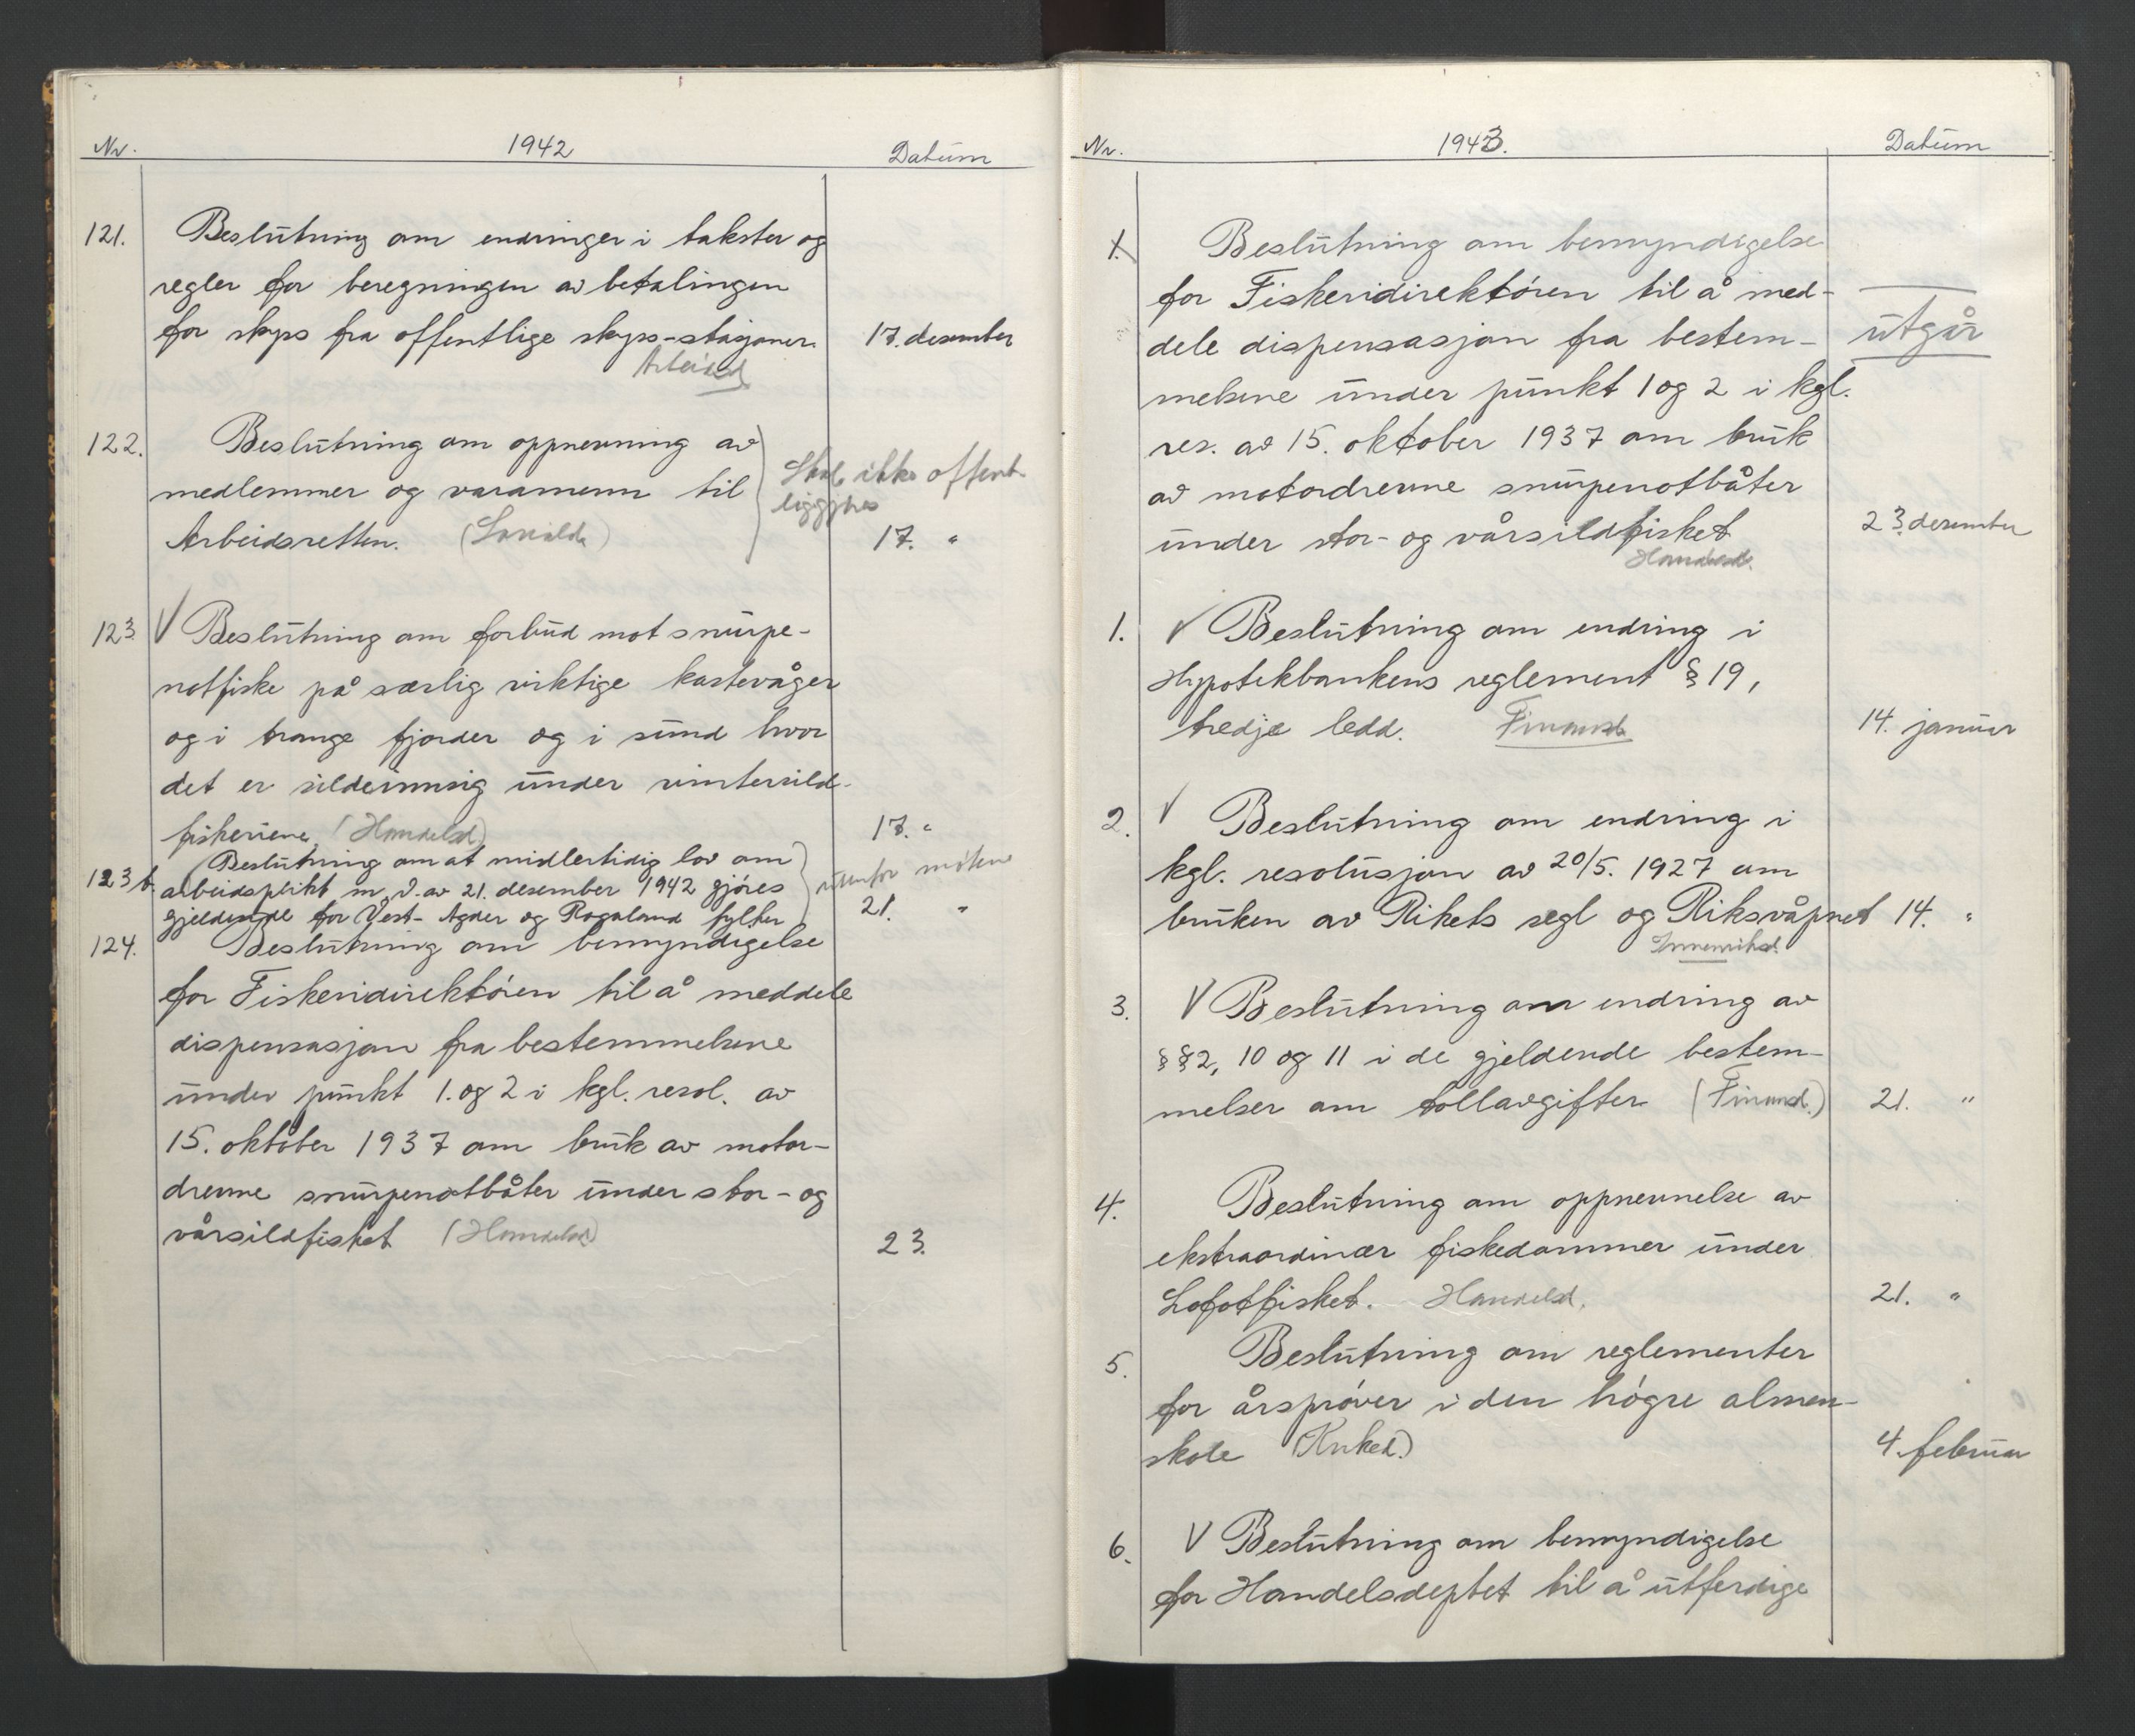 Nr. 1942 Datum
121. Beslutning om endringer i takster og
regler for beregningen av betalingen
for skyss fra offentlige skyss-stasjoner. 17. desember
Arbeidsd
122. Beslutning om oppnevning av
medlemmer og varamenn til
Skal ikke offent-
liggjøres
Arbeidsretten. (Sosiald) 17. "
123 V Beslutning om forbud mot snurpe-
notfiske på særlig viktige kastevåger
og i trange fjorder og i sund hvor
det er sildeinnsig under vintersild-
fiskeriene (Handelsd) 17. "
123 b. Beslutning om at midlertidig lov om
arbeidsplikt m.v. av 21. desember 1942 gjøres utenfor møtene
gjeldende for Vest-Agder og Rogaland fylker 21. "
124. Beslutning om bemyndigelse
for Fiskeridirektøren til å meddele
dispensasjon fra bestemmelsene
under punkt 1. og 2 i kgl. resol. av
15. oktober 1937 om bruk av motor-
drevne snurpenotbåter under stor- og
vårsildfisket (Handelsd) 23.
Nr. 1943. Datum
1. Beslutning om bemyndigelse
for Fiskeridirektøren til å med-
dele dispensasjon fra bestem- utgår
melsene under punkt 1 og 2 i kgl.
res. av 15. oktober 1937 om bruk
av motordrevne snurpenotbåter
under stor- og vårsildfisket 23. desember
Handelsd.
1. V Beslutning om endring i
Hypotekbankens reglement § 19,
tredje ledd. Finansd. 14. januar
2. V Beslutning om endring i
kgl. resolusjon av 20/5. 1927 om
bruken av Rikets segl og Riksvåpnet 14. "
Innenriksd.
3. V Beslutning om endring av
§§ 2, 10 og 11 i de gjeldende bestem-
melser om tollavgifter (Finansd.) 21. "
4. Beslutning om oppnevnelse av
ekstraordinær fiskedommer under
Lofotfisket. Handelsd. 21. "
5. Beslutning om reglementer
for årsprøver i den høgre almen-
skole (Kirked.) 4. februar
6. V Beslutning om bemyndigelse
for Handelsdeptet til å utferdige